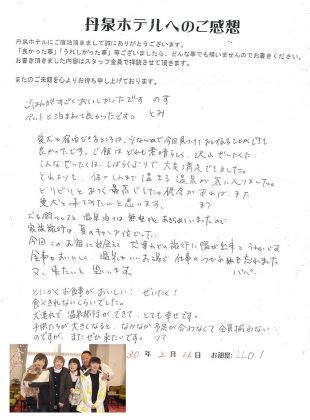 丹泉ホテルへのご感想
丹泉ホテルにご宿泊頂きまして誠にありがとうございます。
「良かった事」「うれしかった事」等ございましたら、どんな事でも構いませんのでお書きください。
お書き頂きました内容はスタッフ全員で拝読させて頂きます。
またのご来館を心よりお待ち申し上げております。
ごはんがすごくおいしかったです のす
ペットと泊まれて良かったです。 とみ
愛犬と宿泊できるところは、少ないので今日見つけ
良かったです。ご飯はどれも素晴らしく
こんなぜいたくは、しばらくぶりで大変満足でした。
それよりも、体のしんまで温まる温泉が気に入りました。
愛犬と来てみたいと思います。
犬を飼っていると温泉泊は無理かとあきらめていましたので
家族旅行は夏のキャンプ位でした。
今回このお宿に出会えて犬連れでの旅行に幅が出来てうれしいです
食事もおいしい、温泉も お湯で仕事のつかれも忘れました
又、来たいと思います。 パパ
とにかくお食事がおいしい! ぜいたく!
食べきれないくらいでした。
犬連れで温泉旅行ができて、とても幸せです。
子供たちが大きくなると、なかなか予定が合わなくて全員揃わない
のですが、またぜひ来たいです。 ママ
30年 2月 16日 お部屋: 401